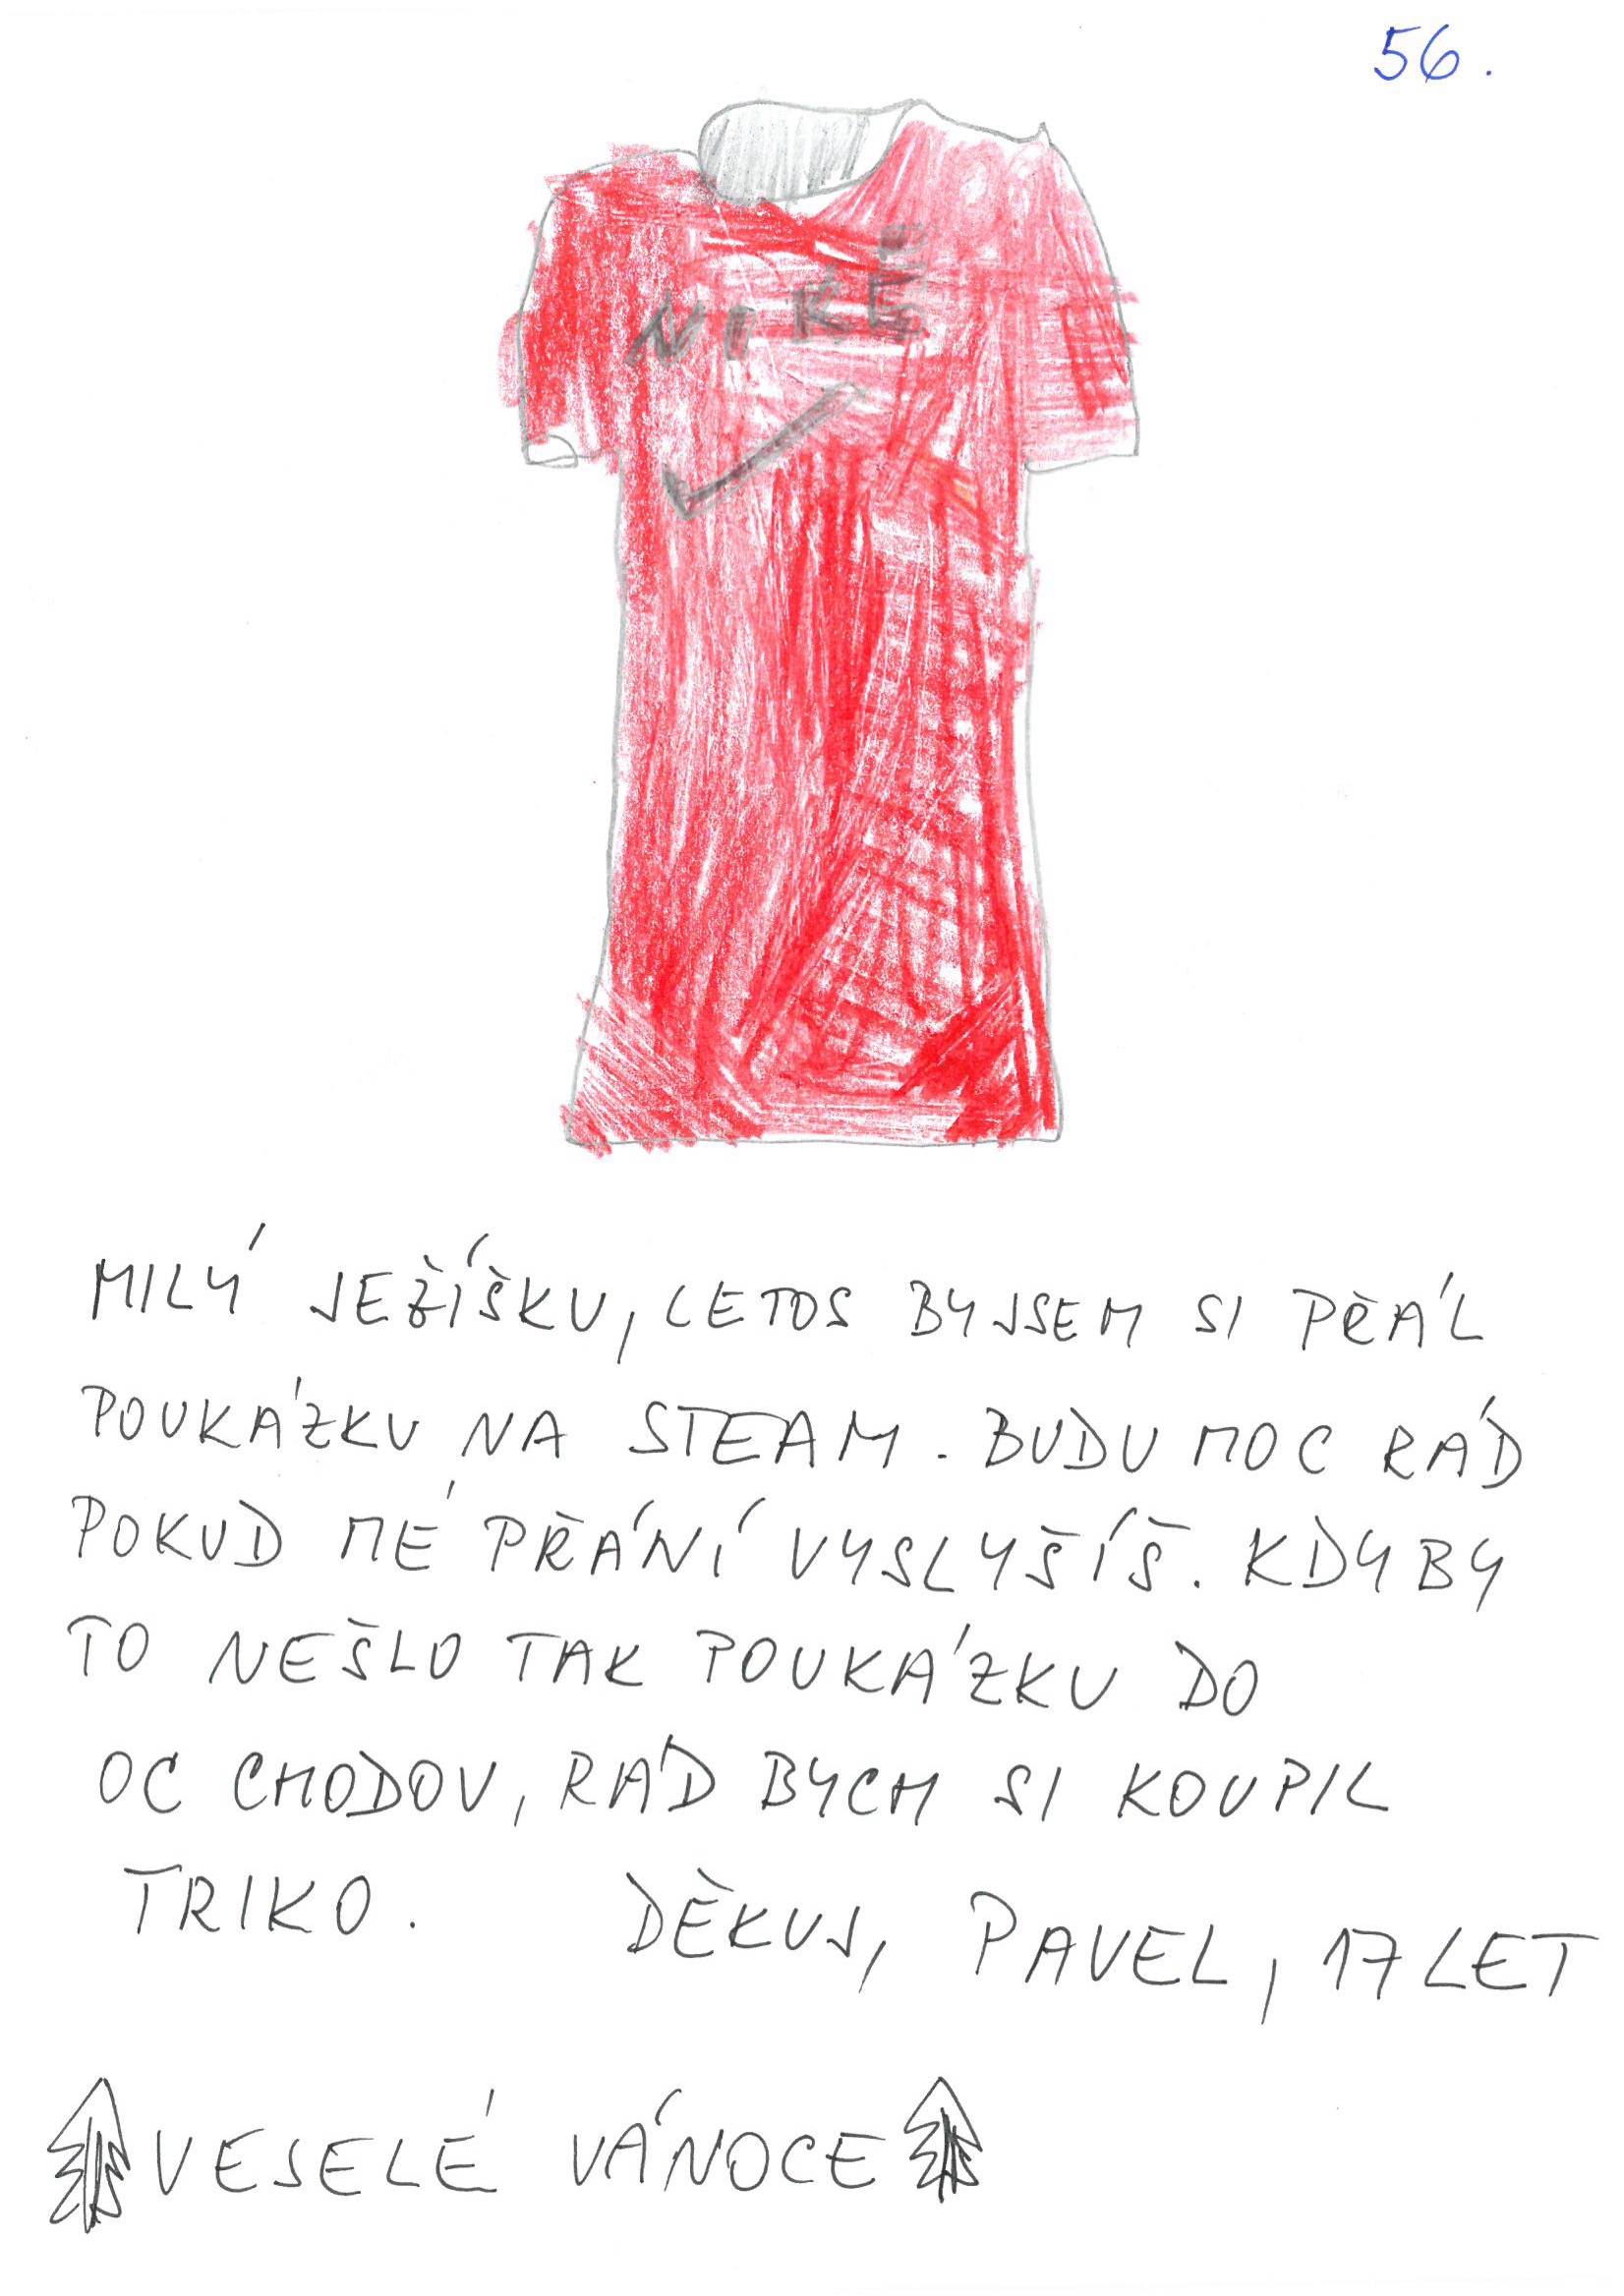 56.
NIKE
MILÝ JEŽÍŠKU, LETOS BYJSEM SI PŘÁL
POUKÁZKU NA STEAM. BUDU MOC RÁD
POKUD MÉ PŘÁNÍ VYSLYŠÍŠ. KDYBY
TO NEŠLO TAK POUKÁZKU DO
OC CHODOV, RÁD BYCH SI KOUPIL
TRIKO. DĚKUJ, PAVEL, 17 LET
VESELÉ VÁNOCE